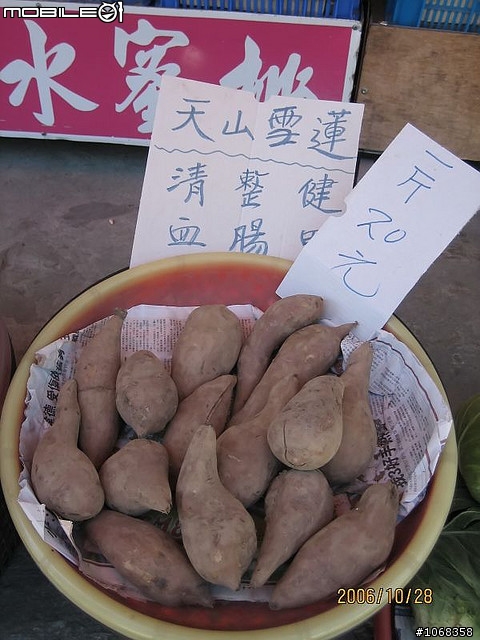 MOBILE01
水蜜桃
天山雪蓮
清整健
血腸胃
一斤
70元
2006/10/28
#1068358